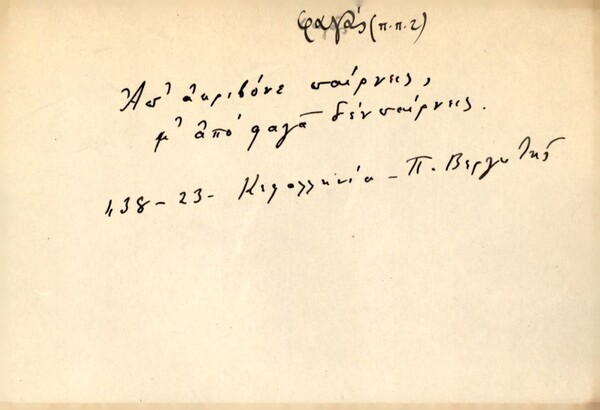 φαγάς (π.π.2)
Ἀπ' ἀκριβόνε παίρνεις,
μ' ἀπό φαγᾶ δέν παίρνεις.
438-23- Κεφαλληνία - Π. Βεργωτῆς